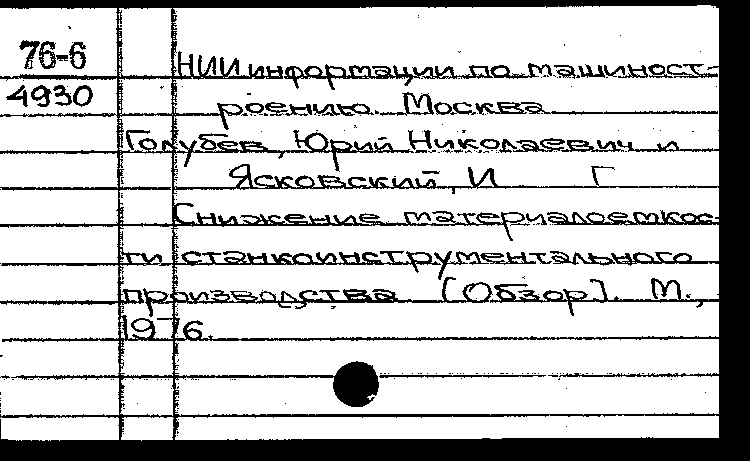 76-6
НИИ информации по машиност-
4930
роению. Москва
Голубев, Юрий Николаевич и
Ясковский, И Г
Снижение материалоемкос-
ти станкоинструментального
производства [Обзор]. М.,
1976.